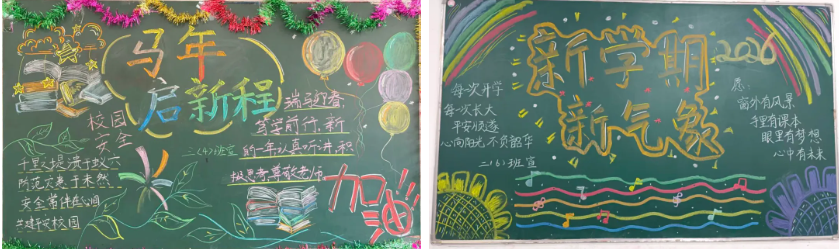 马年
启新程
校园
安全
千里之堤溃于蚁穴
防范灾患于未然
安全常伴在心间
共建平安校园
二(4)班宣
瑞马迎春
奋学前行,新
的一年认真听讲,积
极思考尊敬老师
加油
新学期
2026
新气象
每次升学
每次长大
平安顺遂
心向阳光 不负韶华
二(6)班宣
愿:
窗外有风景
手里有课本
眼里有梦想
心中有未来